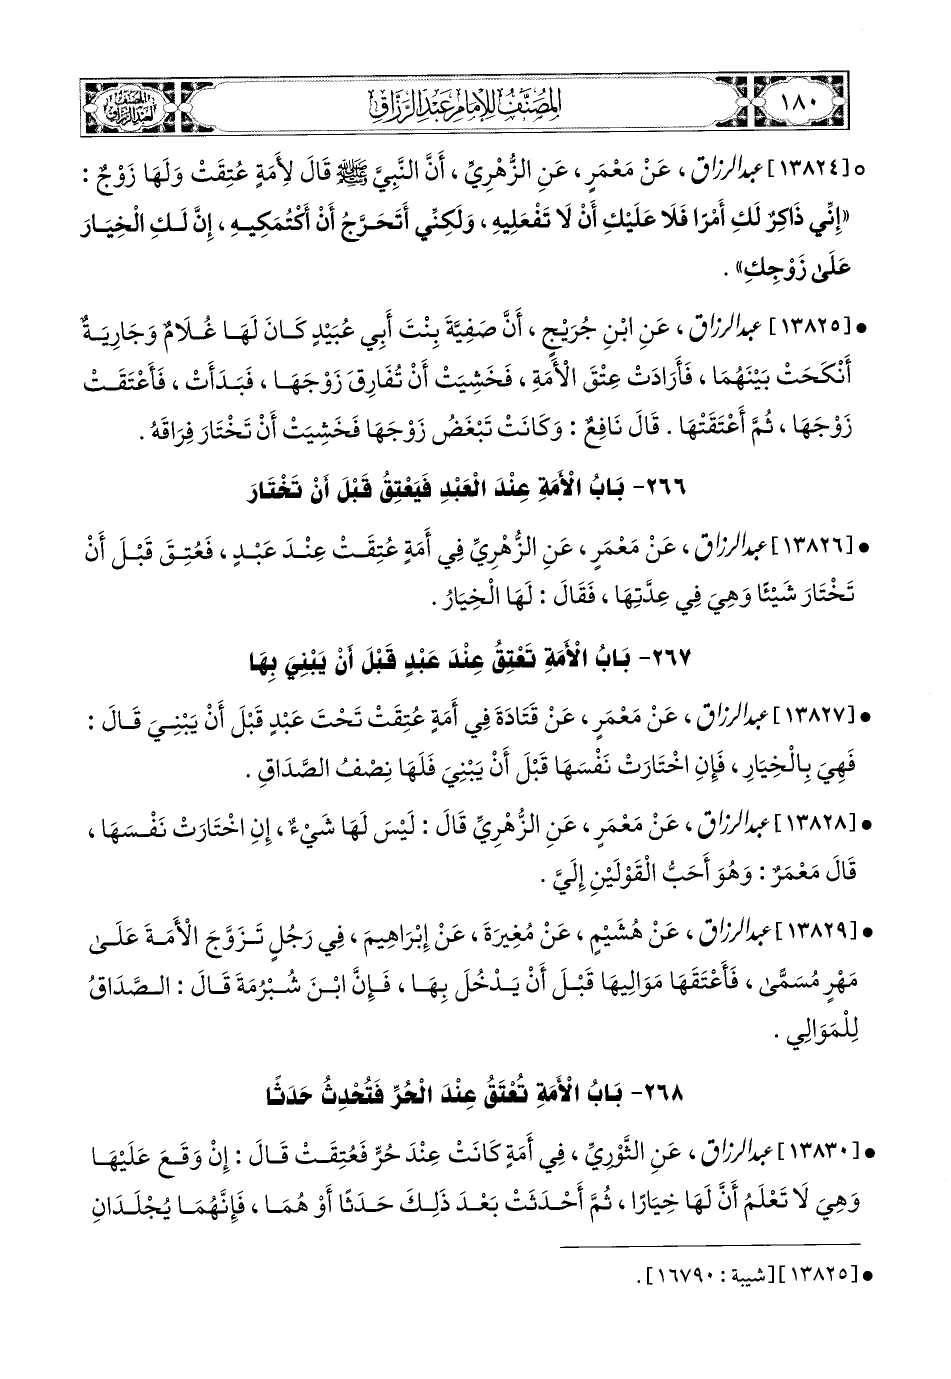 ١٨٠
المصنف للإمام عبد الرزاق
المصنف
لعبد الرزاق
○ [١٣٨٢٤] عبد الرزاق، عَنْ مَعْمَرٍ، عَنِ الزُّهْرِيِّ، أَنَّ النَّبِيَّ ﷺ قَالَ لِأَمَةٍ عُتِقَتْ وَلَهَا زَوْجٌ :
«إِنِّي ذَاكِرٌ لَكِ أَمْرًا فَلَا عَلَيْكِ أَنْ لَا تَفْعَلِيهِ، وَلَكِنِّي أَتَحَرَّجُ أَنْ أَكْتُمَكِيهِ، إِنَّ لَكِ الْخِيَارَ
عَلَىٰ زَوْجِكِ» .
• [١٣٨٢٥] عبد الرزاق، عَنِ ابْنِ جُرَيْجٍ، أَنَّ صَفِيَّةَ بِنْتَ أَبِي عُبَيْدٍ كَانَ لَهَا غُلَامٌ وَجَارِيَةٌ
أَنْكَحَتْ بَيْنَهُمَا، فَأَرَادَتْ عِتْقَ الْأَمَةِ، فَخَشِيَتْ أَنْ تُفَارِقَ زَوْجَهَا، فَبَدَأَتْ، فَأَعْتَقَتْ
زَوْجَهَا، ثُمَّ أَعْتَقَتْهَا . قَالَ نَافِعٌ : وَكَانَتْ تَبْغَضُ زَوْجَهَا فَخَشِيَتْ أَنْ تَخْتَارَ فِرَاقَهُ .
٢٦٦- بَابُ الْأَمَةِ عِنْدَ الْعَبْدِ فَيَعْتِقُ قَبْلَ أَنْ تَخْتَارَ
• [١٣٨٢٦] عبد الرزاق، عَنْ مَعْمَرٍ، عَنِ الزُّهْرِيِّ فِي أَمَةٍ عُتِقَتْ عِنْدَ عَبْدٍ، فَعُتِقَ قَبْلَ أَنْ
تَخْتَارَ شَيْئًا وَهِيَ فِي عِدَّتِهَا، فَقَالَ : لَهَا الْخِيَارُ .
٢٦٧- بَابُ الْأَمَةِ تَعْتِقُ عِنْدَ عَبْدٍ قَبْلَ أَنْ يَبْنِيَ بِهَا
• [١٣٨٢٧] عبد الرزاق، عَنْ مَعْمَرٍ، عَنْ قَتَادَةَ فِي أَمَةٍ عُتِقَتْ تَحْتَ عَبْدٍ قَبْلَ أَنْ يَبْنِيَ قَالَ :
فَهِيَ بِالْخِيَارِ، فَإِنِ اخْتَارَتْ نَفْسَهَا قَبْلَ أَنْ يَبْنِيَ فَلَهَا نِصْفُ الصَّدَاقِ .
• [١٣٨٢٨] عبد الرزاق، عَنْ مَعْمَرٍ، عَنِ الزُّهْرِيِّ قَالَ : لَيْسَ لَهَا شَيْءٌ، إِنِ اخْتَارَتْ نَفْسَهَا،
قَالَ مَعْمَرٌ : وَهُوَ أَحَبُّ الْقَوْلَيْنِ إِلَيَّ .
• [١٣٨٢٩] عبد الرزاق، عَنْ هُشَيْمٍ، عَنْ مُغِيرَةَ، عَنْ إِبْرَاهِيمَ، فِي رَجُلٍ تَزَوَّجَ الْأَمَةَ عَلَىٰ
مَهْرٍ مُسَمًّى، فَأَعْتَقَهَا مَوَالِيهَا قَبْلَ أَنْ يَدْخُلَ بِهَا، فَإِنَّ ابْنَ شُبْرُمَةَ قَالَ : الصَّدَاقُ
لِلْمَوَالِي .
٢٦٨- بَابُ الْأَمَةِ تُعْتَقُ عِنْدَ الْحُرِّ فَتُحْدِثُ حَدَثًا
• [١٣٨٣٠] عبد الرزاق، عَنِ الثَّوْرِيِّ، فِي أَمَةٍ كَانَتْ عِنْدَ حُرٍّ فَعُتِقَتْ قَالَ : إِنْ وَقَعَ عَلَيْهَا
وَهِيَ لَا تَعْلَمُ أَنَّ لَهَا خِيَارًا، ثُمَّ أَحْدَثَتْ بَعْدَ ذَلِكَ حَدَثًا أَوْ هُمَا، فَإِنَّهُمَا يُجْلَدَانِ
• [١٣٨٢٥] [شيبة : ١٦٧٩٠] .